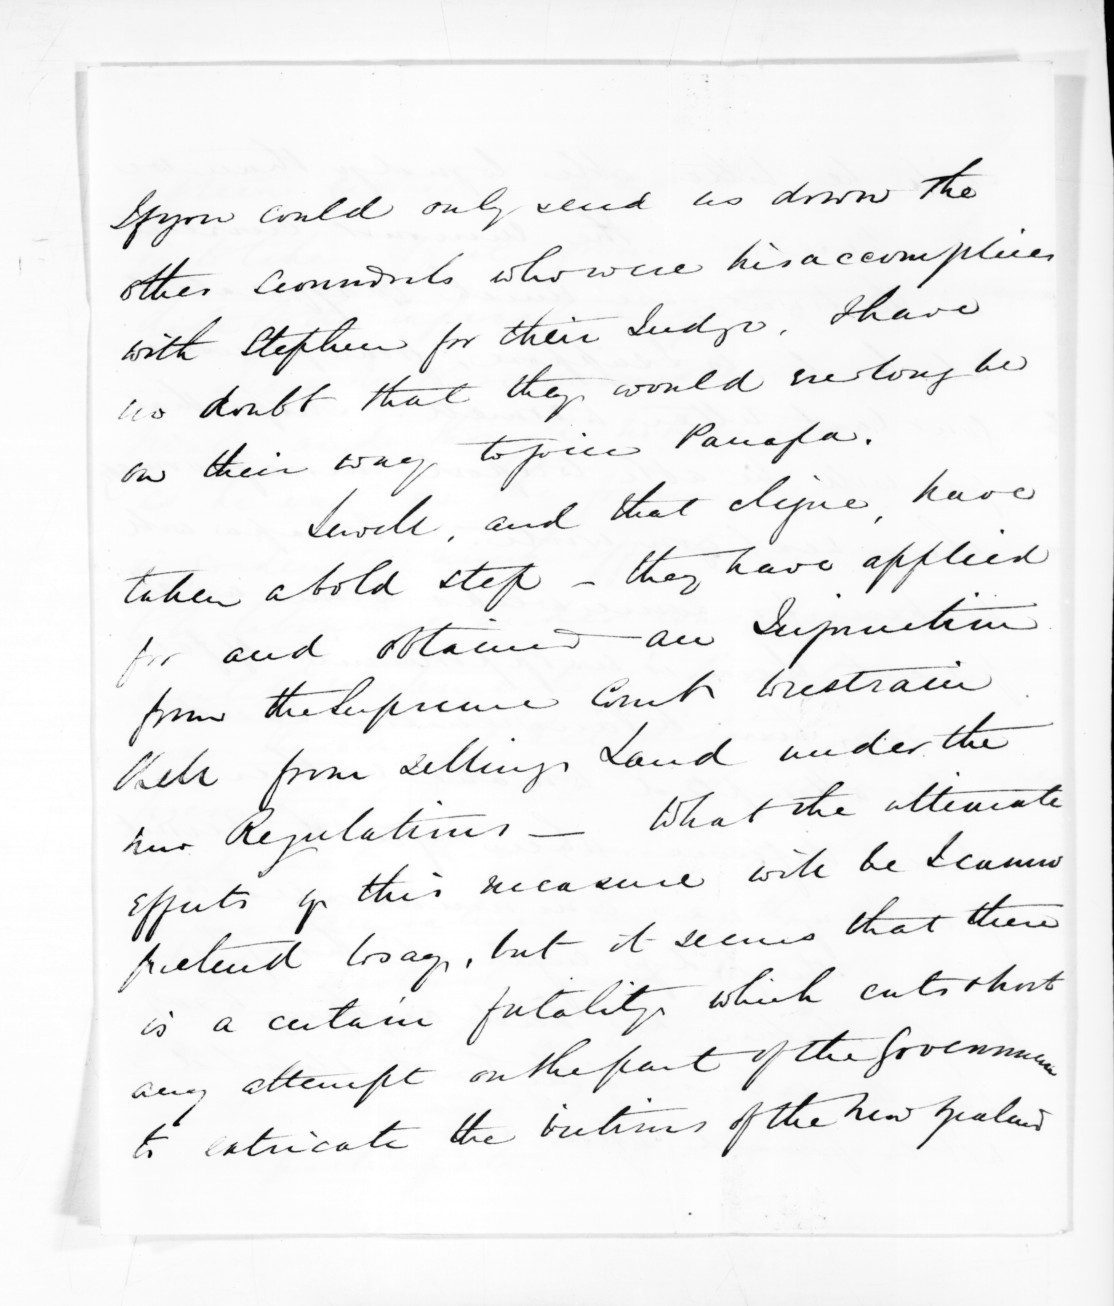 If you could only send us down the
other scoundrels who were his accomplices
with Stephen for their Judge. I have
no doubt that they would ere long be
on their way to join Panapa.
Sewell, and that clique, have
taken a bold step - they have applied
for and obtained an Injunction
from the Supreme Court to restrain
Bell from selling Land under the
new Regulations - What the ultimate
effects of this measure will be I cannot
pretend to say, but it seems that there
is a certain fatality which cuts short
any attempt on the part of the Government
to extricate the victims of the New Zealand